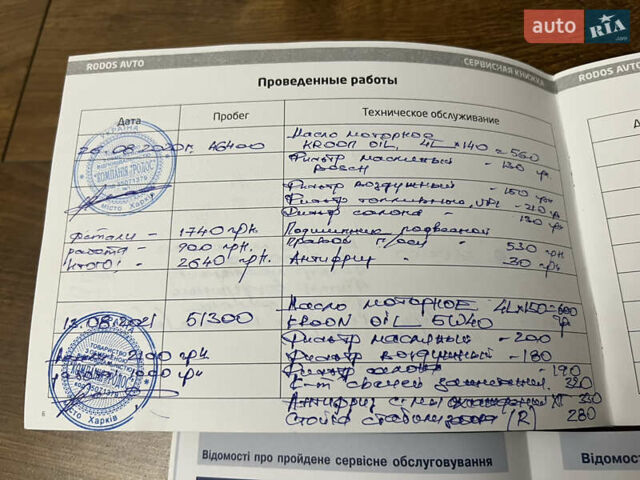 auto RIA .com
RODOS AVTO
СЕРВИСНАЯ КНИЖКА
RODOS AVTO
Проведенные работы
Дата Пробег Техническое обслуживание
Масло моторное
26.08.2020г. 46400 KROON OIL, 4L × 140 = 560
Фильтр масляный - 130 грн
Фильтр воздушный - 150 грн
Фильтр топливный - 210 грн
Фильтр салона - 130 грн
Детали - 1740 грн. Подшипник подвесной
работа - 900 грн. правой - 530 грн
Итого: 2640 грн. Антифриз - 30 грн
Масло моторное 4L × 150 = 600
13.08.2021 51300 KROON OIL 5W40 грн
Фильтр масляный - 200
2100 грн Фильтр воздушный - 180
Фильтр салона - 190
К-т свечей зажигания 320
Антифриз 330
Стойка стабилизат (R) 280
УКРАЇНА
КОМПАНІЯ "РОДОС"
місто Харків
ТОВАРИСТВО
місто Харків
6
Відомості про пройдене сервісне обслуговування
Відомо